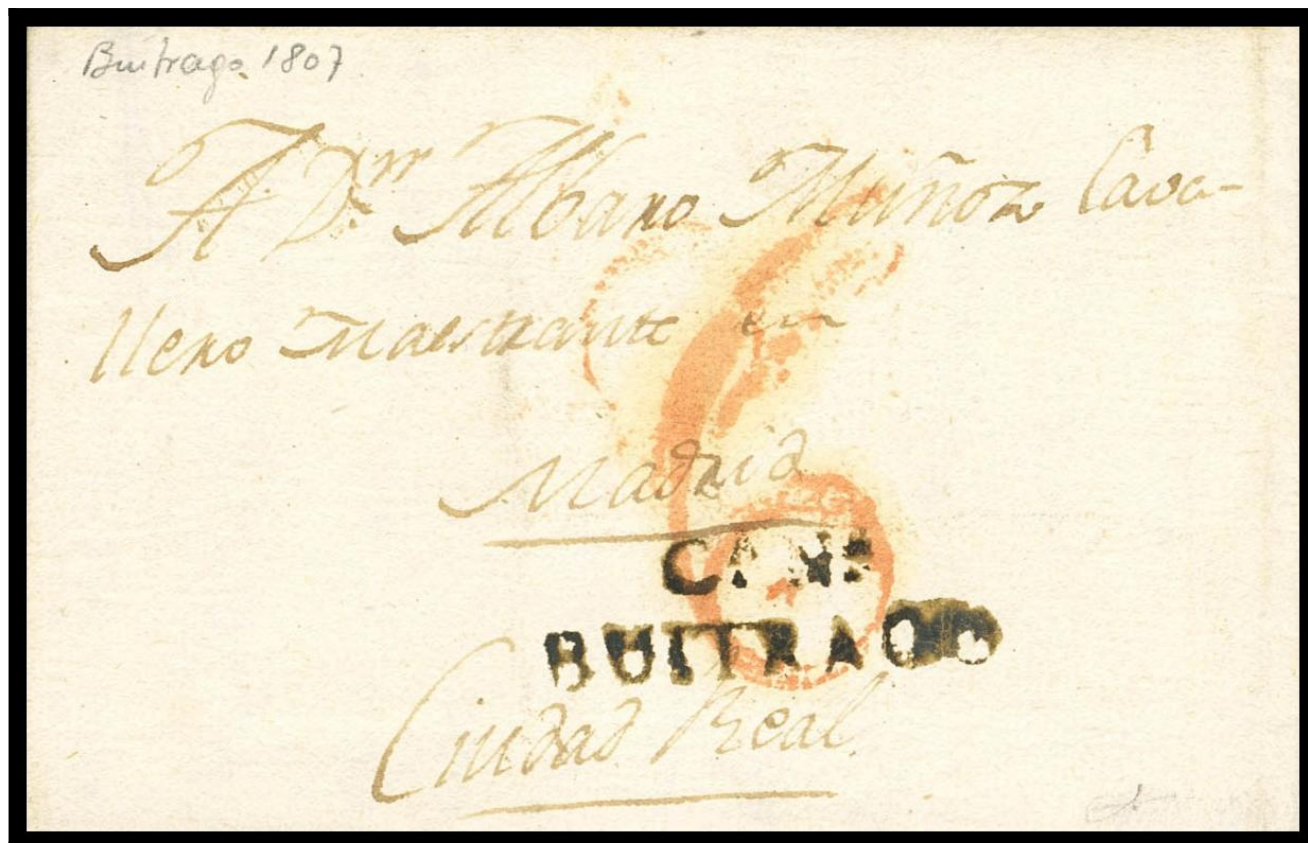 Buitrago 1807
A Dn. Albaro Muñoz Cava-
llero Maestrante en
Madrid
6
CANa
BUITRAGO
Ciudad Real.